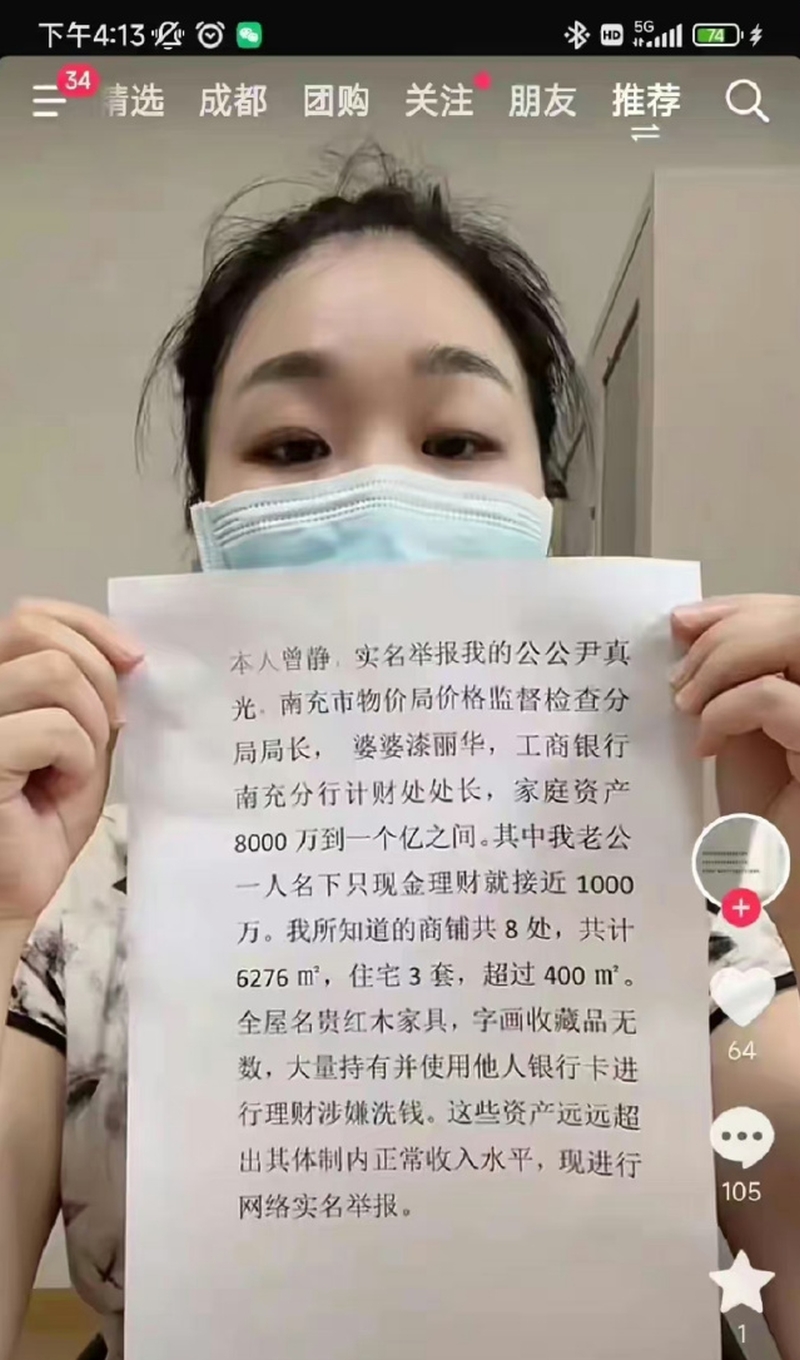 下午4:13
HD
5G
74
34
精选 成都 团购 关注 朋友 推荐
本人曾静，实名举报我的公公尹真
光，南充市物价局价格监督检查分
局局长， 婆婆漆丽华，工商银行
南充分行计财处处长，家庭资产
8000 万到一个亿之间。其中我老公
一人名下只现金理财就接近 1000
万。我所知道的商铺共 8 处，共计
6276 ㎡，住宅 3 套，超过 400 ㎡。
全屋名贵红木家具，字画收藏品无
数，大量持有并使用他人银行卡进
行理财涉嫌洗钱。这些资产远远超
出其体制内正常收入水平，现进行
网络实名举报。
64
105
1